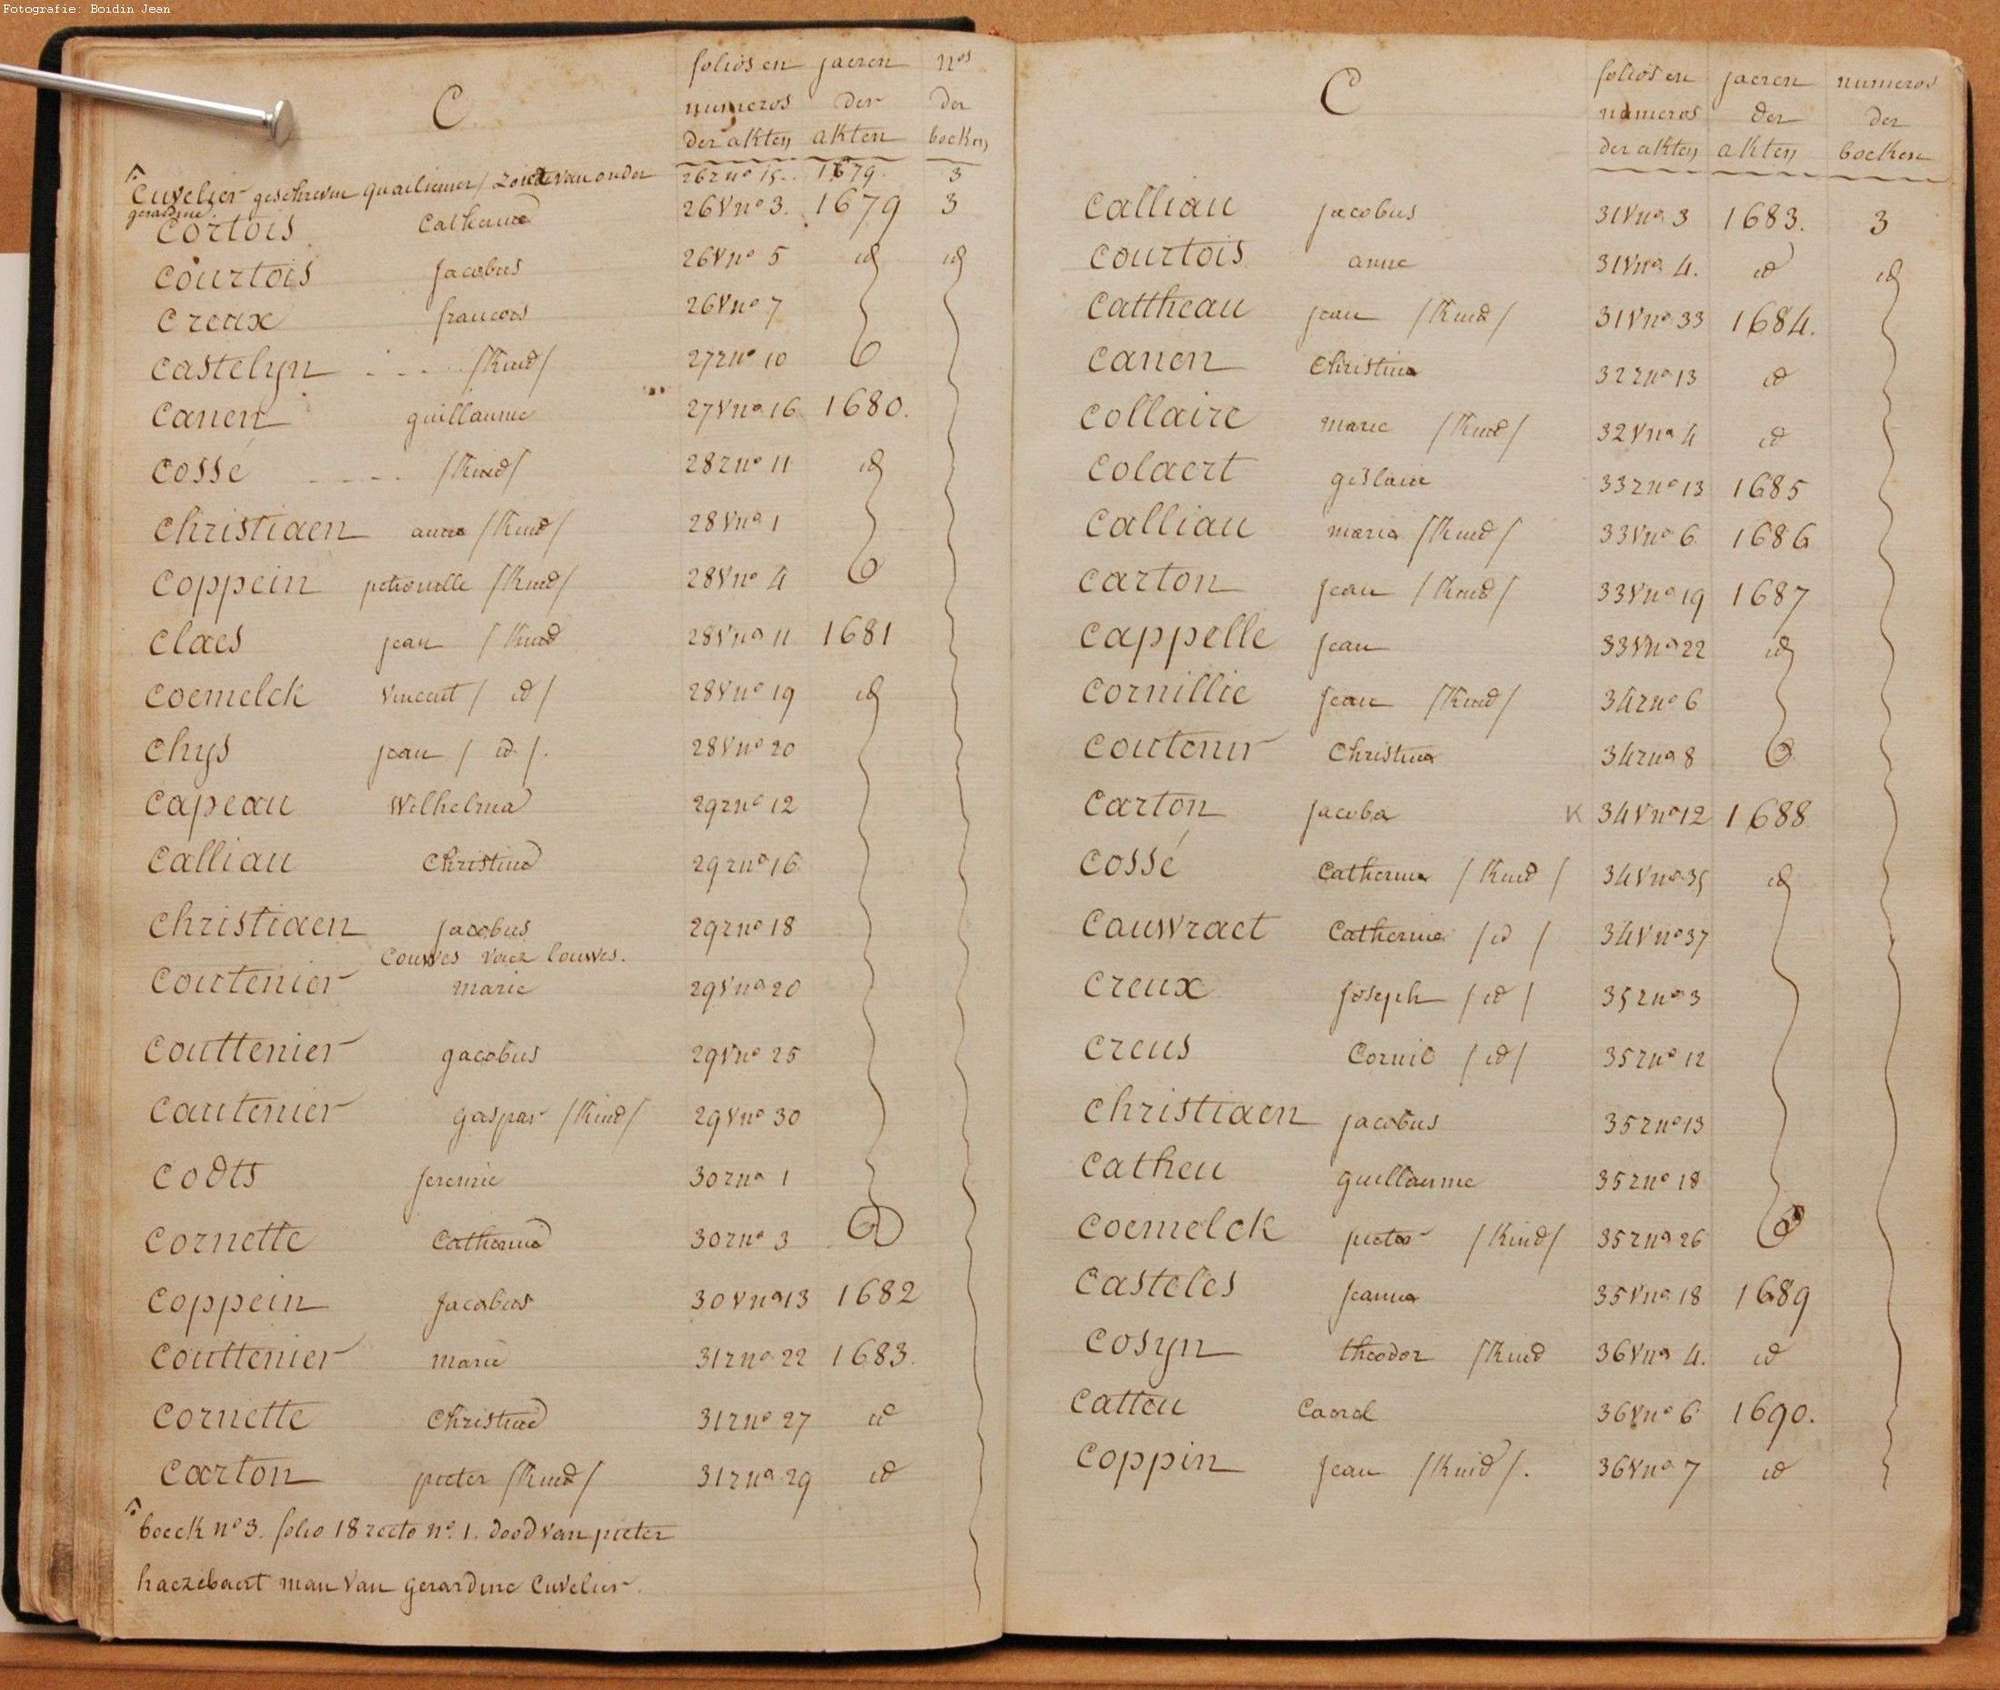 Fotografie: Boidin Jean
C
folios en jaeren nos
numeros der der
der akten akten boeken
Cuvelier geschreven quaeliener / ziet van onder 26 r no 15. 1679. 3
gerardine.
Cortois Catherine 26 V no 3. 1679 3
Courtois Jacobus 26 V no 5 id id
Creux francois 26 V no 7
Castelyn . . . . /Kind/ 27 r no 10
Canen guillaume 27 V no 16 1680.
Cossé . . . . /Kind/ 28 r no 11 id
Christiaen anna /Kind/ 28 V no 1
Coppein petronelle /Kind/ 28 V no 4
Claes jean /Kind 28 V no 11 1681
Coemelck vincent / id / 28 V no 19 id
Chys jean / id /. 28 V no 20
Capeau Wilhelma 29 r no 12
Calliau Christine 29 r no 16
Christiaen jacobus 29 r no 18
Couwes voiez louwes.
Coutenier marie 29 V no 20
Couttenier gacobus 29 V no 25
Cautenier gaspar /Kind/ 29 V no 30
Codts jeremie 30 r no 1
Cornette Catherine 30 r no 3
Coppein Jacobus 30 V no 13 1682
Couttenier marie 31 r no 22 1683.
Cornette Christine 31 r no 27 id
Carton pieter /Kind/ 31 r no 29 id
boeck no 3. folio 18 recto no. 1. dood van pieter
haezebaert man van gerardine Cuvelier.
C
folios en jaeren numeros
numeros der der
der akten akten boeken
Calliau jacobus 31 V no 3 1683. 3
Courtois anne 31 V no 4. id id
Cattheau jean /Kind/ 31 V no 33 1684.
Canen Christina 32 r no 13 id
Collaire marie /Kind/ 32 V no 4 id
Colaert gislain 33 r no 13 1685
Calliau maria /Kind/ 33 V no 6 1686
Carton jean /Kind/ 33 V no 19 1687
Cappelle jean 33 V no 22 id
Cornillie jean /Kind/ 34 r no 6
Coutenir Christina 34 r no 8
Carton jacoba K 34 V no 12 1688
Cossé Catherina /Kind/ 34 V no 35 id
Cauwraet Catherine /id / 34 V no 37
Creux joseph /id/ 35 r no 3
Creus Cornil /id/ 35 r no 12
Christiaen jacobus 35 r no 13
Catheu guillaume 35 r no 18
Coemelck pieter /Kind/ 35 r no 26
Casteles jeanna 35 V no 18 1689
Cosyn theodor /Kind 36 V no 4. id
Catteu Carol 36 V no 6 1690.
Coppin jean /Kind/. 36 V no 7 id